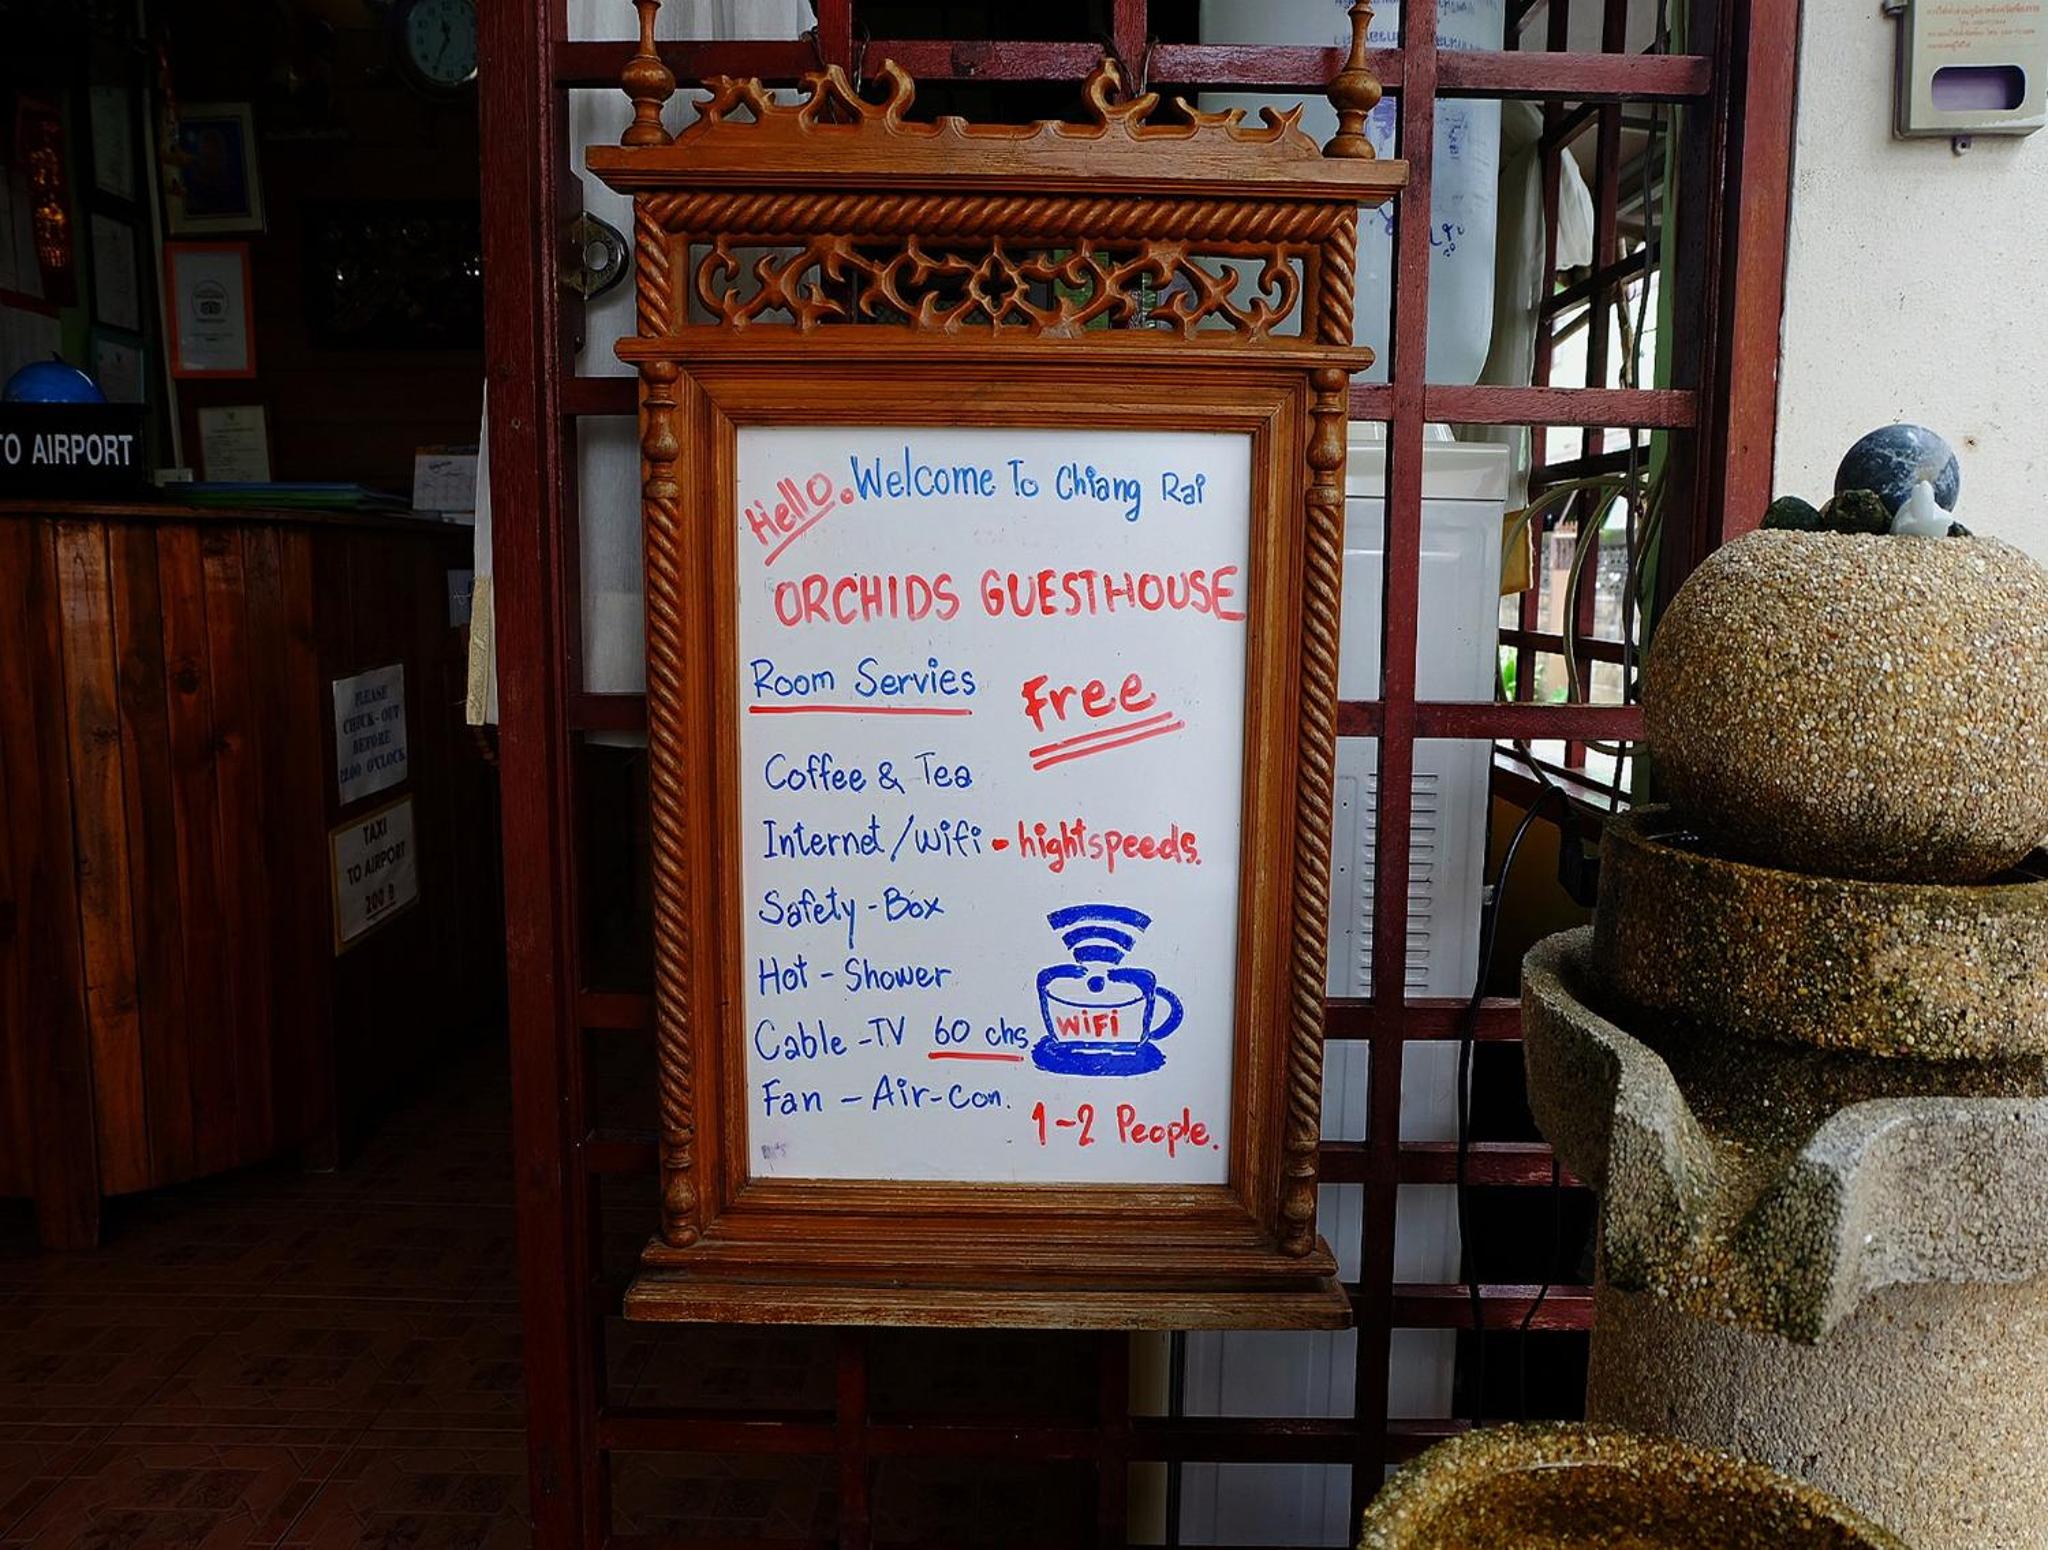 TO AIRPORT
PLEASE
CHECK-OUT
BEFORE
O'CLOCK
TAXI
TO AIRPORT
200 ฿
Hello. Welcome To Chiang Rai
ORCHIDS GUESTHOUSE
Room Servies Free
Coffee & Tea
Internet/Wifi - hightspeeds.
Safety-Box
Hot-Shower
Cable-TV 60 chs
WiFi
Fan - Air-Con.
1-2 People.